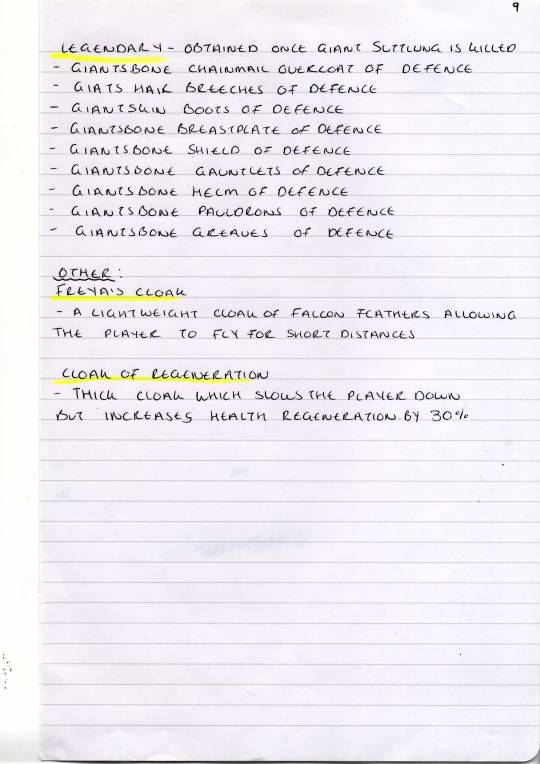 9
LEGENDARY - OBTAINED ONCE GIANT SUTTLUNG IS KILLED
- GIANTSBONE CHAINMAIL OVERCOAT OF DEFENCE
- GIATS HAIR BREECHES OF DEFENCE
- GIANTSKIN BOOTS OF DEFENCE
- GIANTSBONE BREASTPLATE OF DEFENCE
- GIANTSBONE SHIELD OF DEFENCE
- GIANTSBONE GAUNTLETS OF DEFENCE
- GIANTSBONE HELM OF DEFENCE
- GIANTSBONE PAULDRONS OF DEFENCE
- GIANTSBONE GREAVES OF DEFENCE
OTHER:
FREYA'S CLOAK
- A LIGHTWEIGHT CLOAK OF FALCON FEATHERS ALLOWING
THE PLAYER TO FLY FOR SHORT DISTANCES
CLOAK OF REGENERATION
- THICK CLOAK WHICH SLOWS THE PLAYER DOWN
BUT INCREASES HEALTH REGENERATION BY 30%